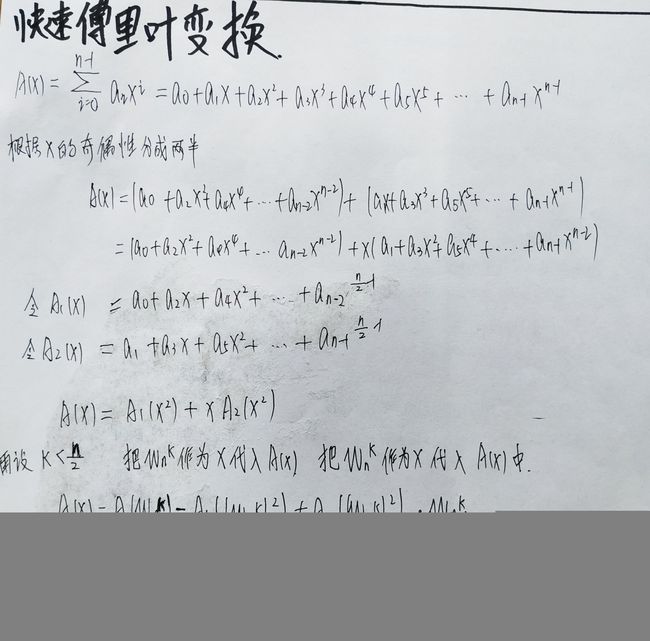 快速傅里叶变换.
A(x) = \sum_{i=0}^{n-1} a_i x^i = a_0 + a_1x + a_2x^2 + a_3x^3 + a_4x^4 + a_5x^5 + ⋯ + a_{n-1} x^{n-1}
根据 x 的奇偶性分成两半
A(x) = (a_0 + a_2x^2 + a_4x^4 + ⋯ + a_{n-2}x^{n-2}) + (a_1x + a_3x^3 + a_5x^5 + ⋯ + a_{n-1}x^{n-1})
= (a_0 + a_2x^2 + a_4x^4 + ⋯ a_{n-2}x^{n-2}) + x(a_1 + a_3x^2 + a_5x^4 + ⋯ + a_{n-1}x^{n-2})
令 A_1(x) = a_0 + a_2x + a_4x^2 + ⋯ + a_{n-2}^{\frac{n}{2}-1}
令 A_2(x) = a_1 + a_3x + a_5x^2 + ⋯ + a_{n-1}^{\frac{n}{2}-1}
A(x) = A_1(x^2) + x A_2(x^2)
设 K < \frac{n}{2} 把 W_n^k 作为 x 代入 A(x) 把 W_n^k 作为 x 代入 A(x) 中.